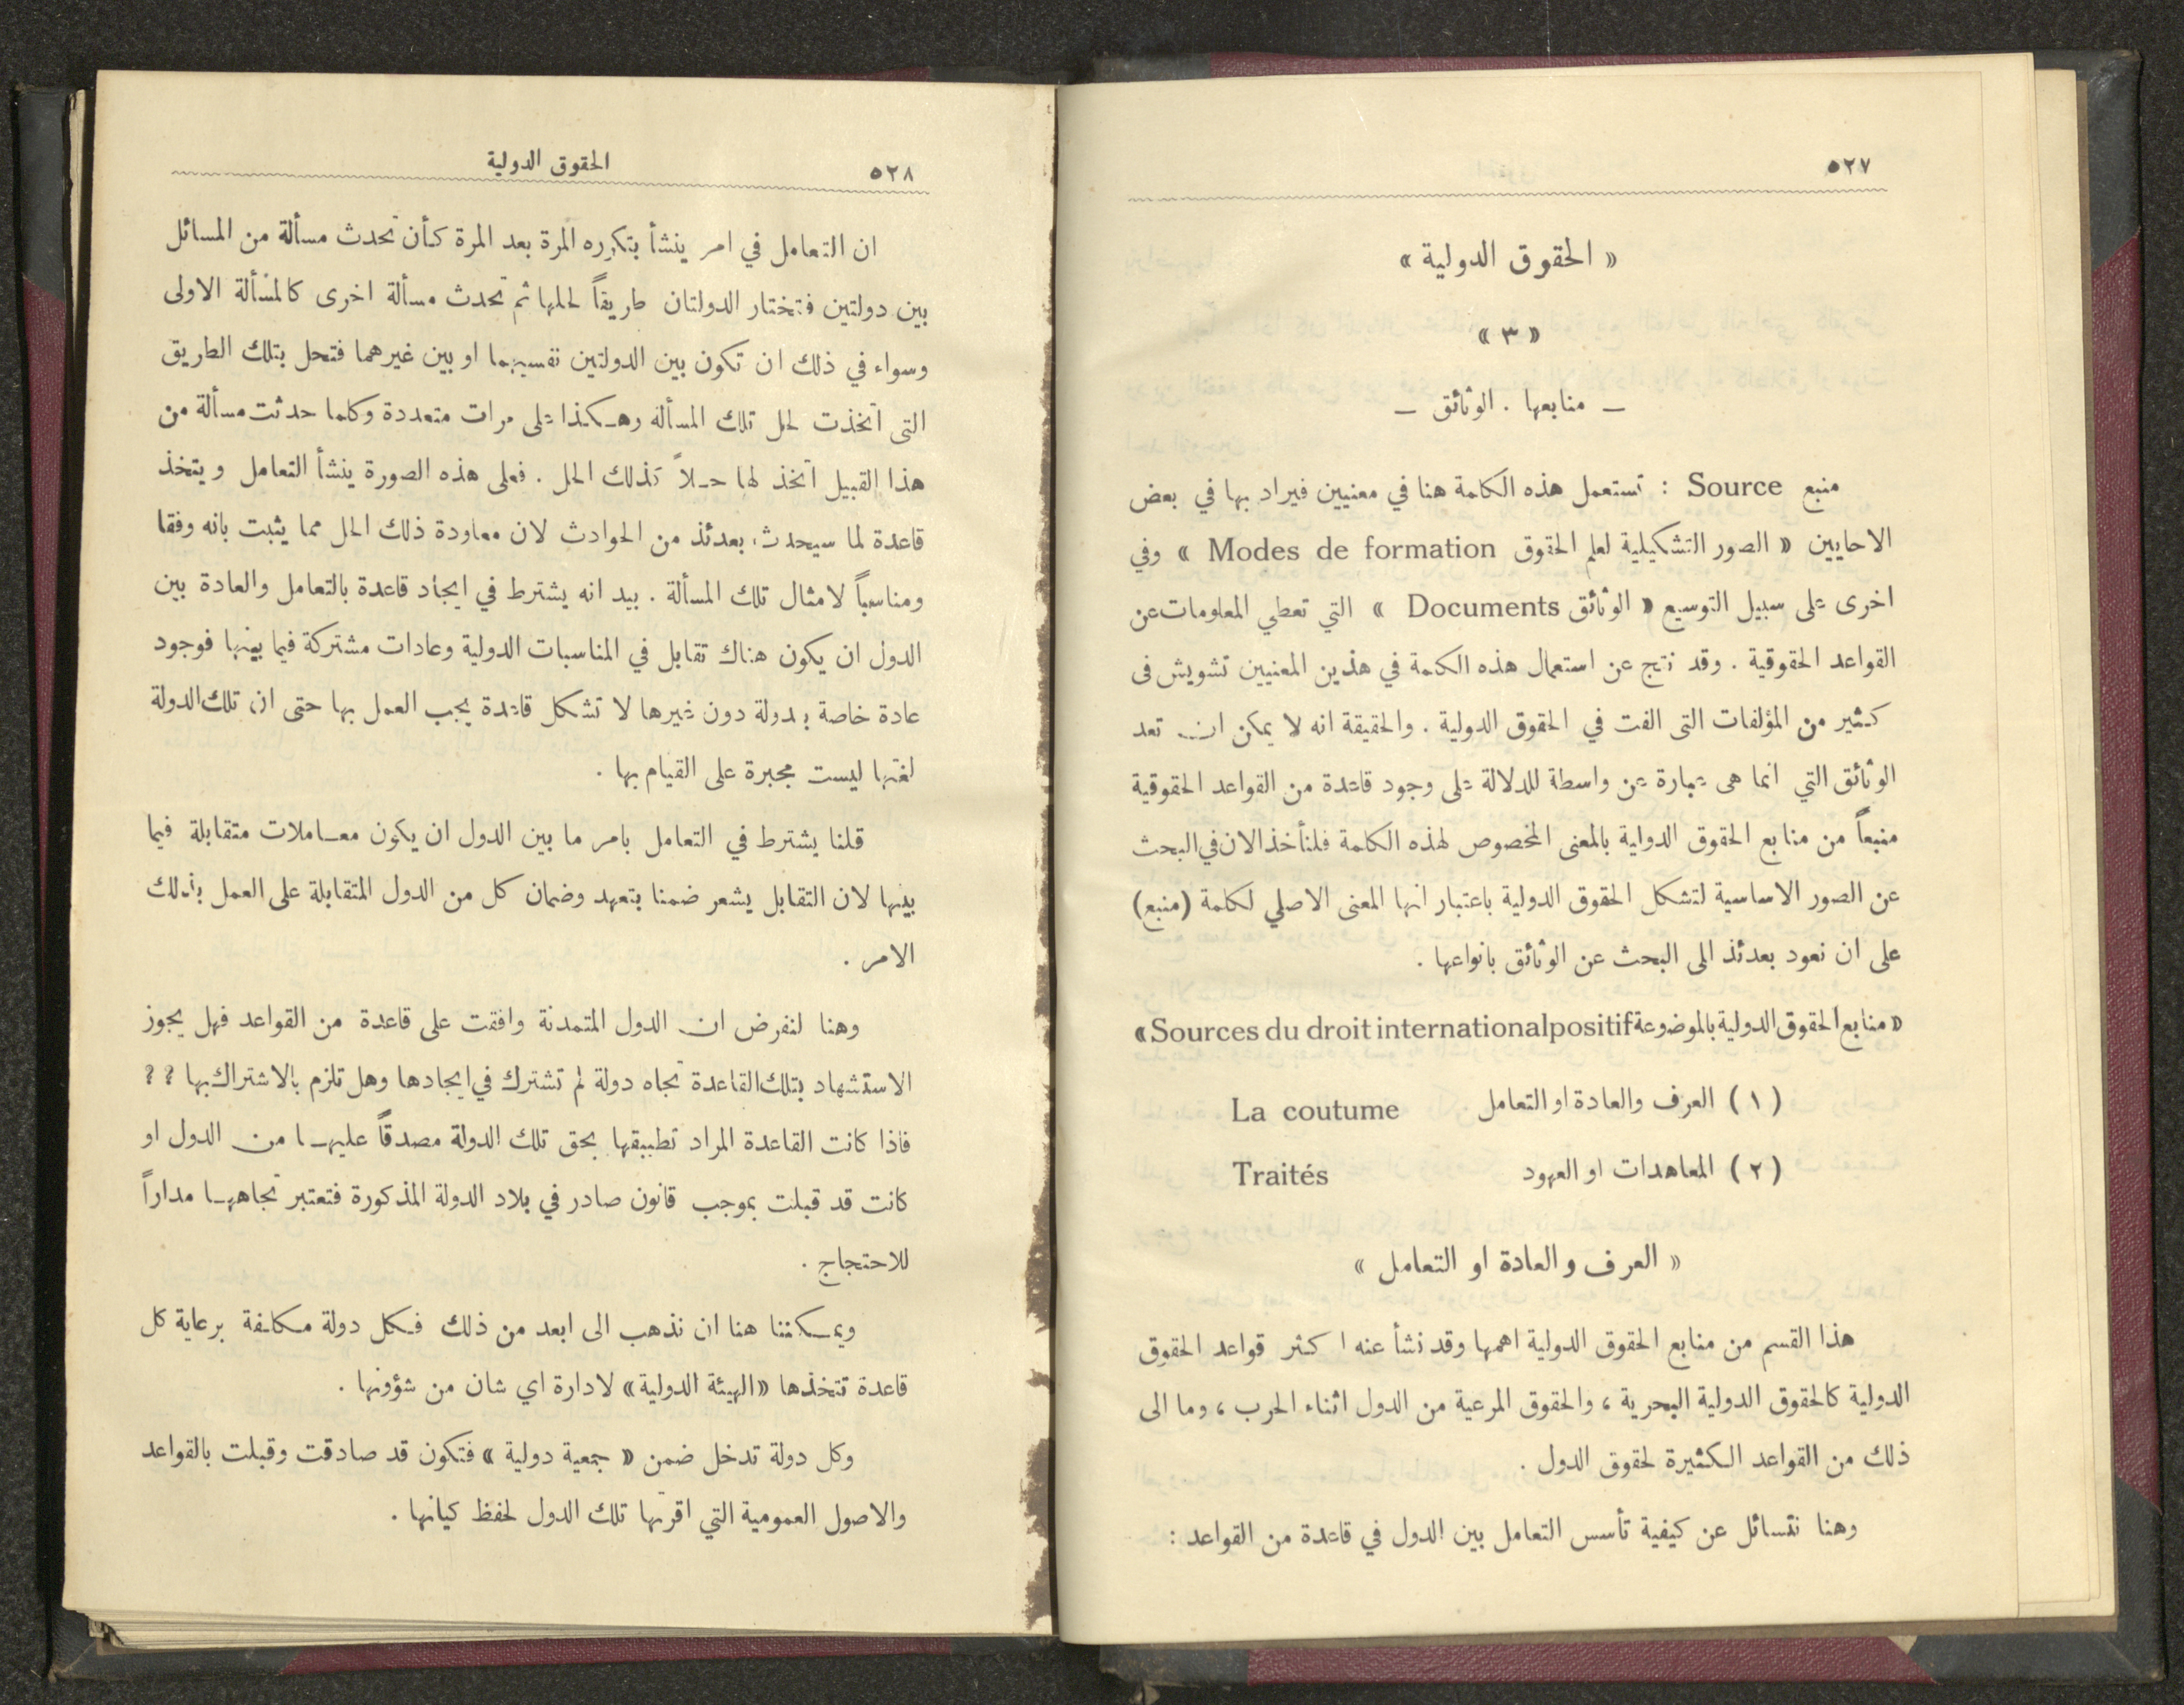 ٥٢٧
« الحقوق الدولية »
« ٣ »
— منابعها . الوثائق —
منبع Source : تستعمل هذه الكلمة هنا في معنيين فيراد بها في بعض
الاحايين « الصور التشكيلية لعلم الحقوق Modes de formation » وفي
اخرى على سبيل التوسيع « الوثائق Documents » التي تعطي المعلومات عن
القواعد الحقوقية . وقد نتج عن استعمال هذه الكلمة في هذين المعنيين تشويش فى
كثير من المؤلفات التى الفت في الحقوق الدولية . والحقيقة انه لا يمكن ان تعد
الوثائق التي انما هى عبارة عن واسطة للدلالة على وجود قاعدة من القواعد الحقوقية
منبعاً من منابع الحقوق الدولية بالمعنى المخصوص لهذه الكلمة فلنأخذ الان في البحث
عن الصور الاساسية لتشكل الحقوق الدولية باعتبار انها المعنى الاصلي لكلمة (منبع)
على ان نعود بعدئذ الى البحث عن الوثائق بانواعها .
« منابع الحقوق الدولية بالموضوعة Sources du droit international positif »
( ١ ) العرف والعادة او التعامل La coutume
( ٢ ) المعاهدات او العهود Traités
« العرف والعادة او التعامل »
هذا القسم من منابع الحقوق الدولية اهمها وقد نشأ عنه اكثر قواعد الحقوق
الدولية كالحقوق الدولية البحرية ، والحقوق المرعية من الدول اثناء الحرب ، وما الى
ذلك من القواعد الكثيرة لحقوق الدول .
وهنا نتسائل عن كيفية تأسس التعامل بين الدول في قاعدة من القواعد :
٥٢٨ الحقوق الدولية
ان التعامل في امر ينشأ بتكرره المرة بعد المرة كأن تحدث مسألة من المسائل
بين دولتين فتختار الدولتان طريقاً لحلها ثم تحدث مسألة اخرى كالمسألة الاولى
وسواء في ذلك ان تكون بين الدولتين نفسيهما او بين غيرهما فتحل بتلك الطريق
التى اتخذت لحل تلك المسألة وهكذا على مرات متعددة وكلما حدثت مسألة من
هذا القبيل اتخذ لها حلاً كذلك الحل . فعلى هذه الصورة ينشأ التعامل ويتخذ
قاعدة لما سيحدث بعدئذ من الحوادث لان معاودة ذلك الحل مما يثبت بانه وفقا
ومناسباً لامثال تلك المسألة . بيد انه يشترط في ايجاد قاعدة بالتعامل والعادة بين
الدول ان يكون هناك تقابل في المناسبات الدولية وعادات مشتركة فيما بينها فوجود
عادة خاصة بدولة دون غيرها لا تشكل قاعدة يجب العمل بها حتى ان تلك الدولة
لغتها ليست مجبرة على القيام بها .
قلنا يشترط في التعامل بامر ما بين الدول ان يكون معاملات متقابلة فيما
بينها لان التقابل يشعر ضمنا بتعهد وضمان كل من الدول المتقابلة على العمل بذلك
الامر .
وهنا لنفرض ان الدول المتمدنة وافقت على قاعدة من القواعد فهل يجوز
الاستشهاد بتلك القاعدة تجاه دولة لم تشترك في ايجادها وهل تلزم بالاشتراك بها ؟ ؟
فاذا كانت القاعدة المراد تطبيقها بحق تلك الدولة مصدقاً عليها من الدول او
كانت قد قبلت بموجب قانون صادر في بلاد الدولة المذكورة فتعتبر تجاهها مداراً
للاحتجاج .
ويمكننا هنا ان نذهب الى ابعد من ذلك فكل دولة مكلفة برعاية كل
قاعدة تتخذها «الهيئة الدولية» لادارة اي شان من شؤونها .
وكل دولة تدخل ضمن « جمعية دولية » فتكون قد صادقت وقبلت بالقواعد
والاصول العمومية التي اقرتها تلك الدول لحفظ كيانها .